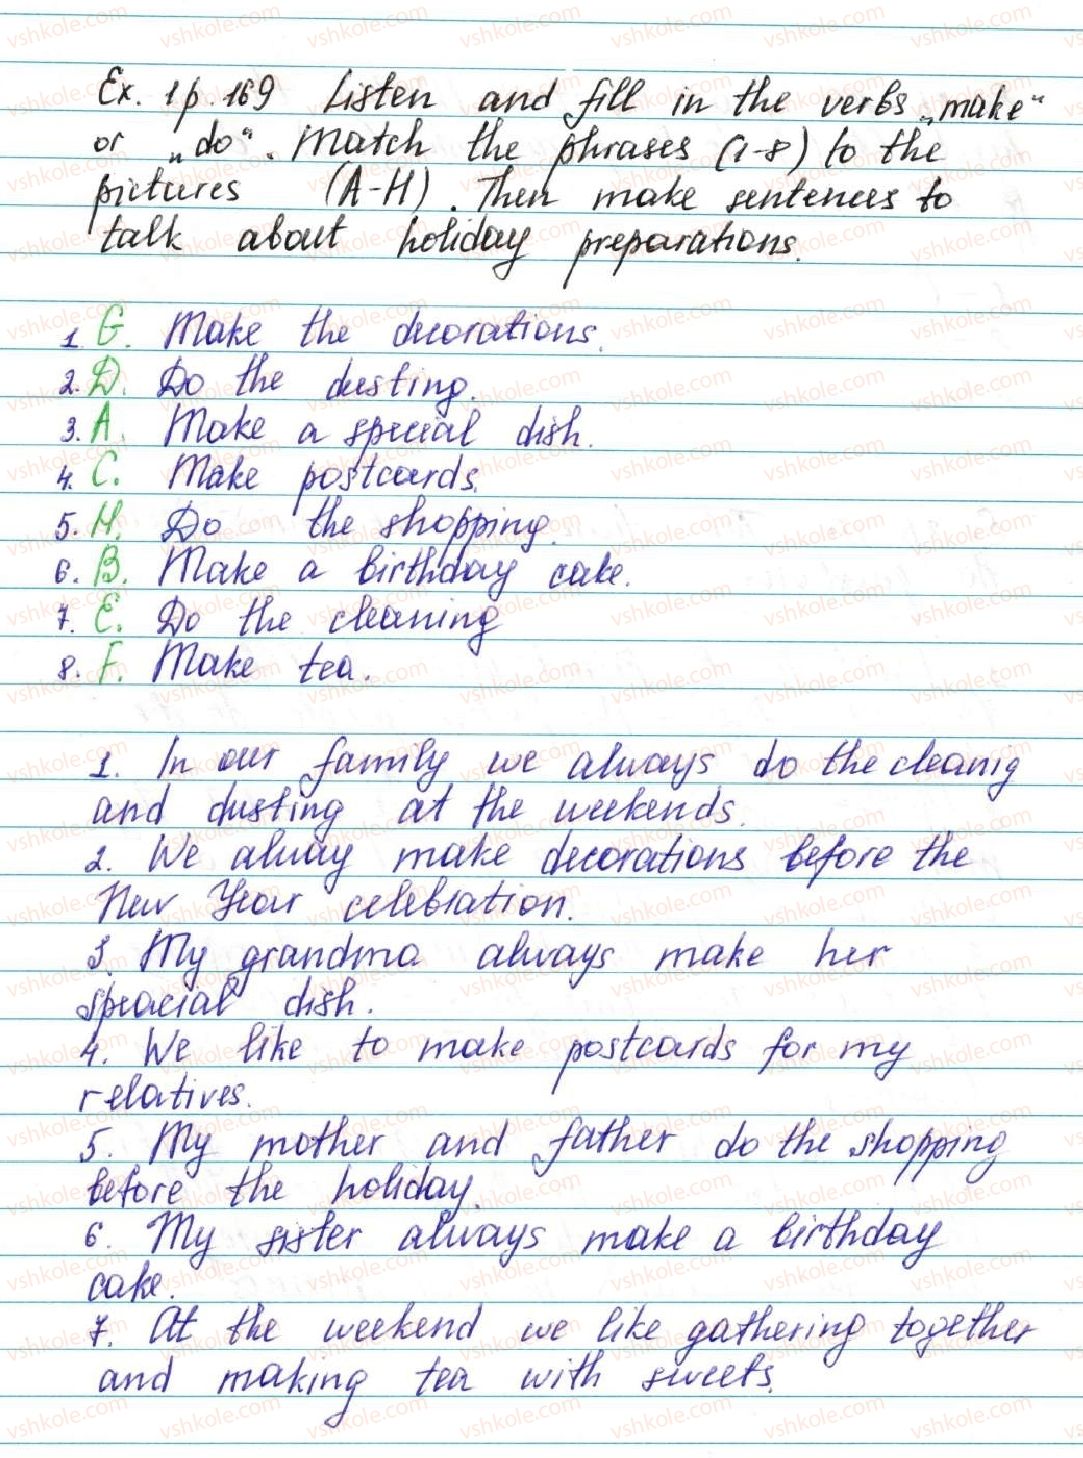 Ex. 1 p. 169 Listen and fill in the verbs „make“
or „do“. Match the phrases (1-8) to the
pictures (A-H). Then make sentences to
talk about holiday preparations.
1. G. Make the decorations.
2. D. Do the dusting.
3. A. Make a special dish.
4. C. Make postcards.
5. H. Do the shopping.
6. B. Make a birthday cake.
7. E. Do the cleaning
8. F. Make tea.
1. In our family we always do the cleanig
and dusting at the weekends.
2. We alway make decorations before the
New Year celebration.
3. My grandma always make her
spracial dish.
4. We like to make postcards for my
relatives.
5. My mother and father do the shopping
before the holiday.
6. My sister always make a birthday
cake.
7. At the weekend we like gathering together
and making tea with sweets.
vshkole.com